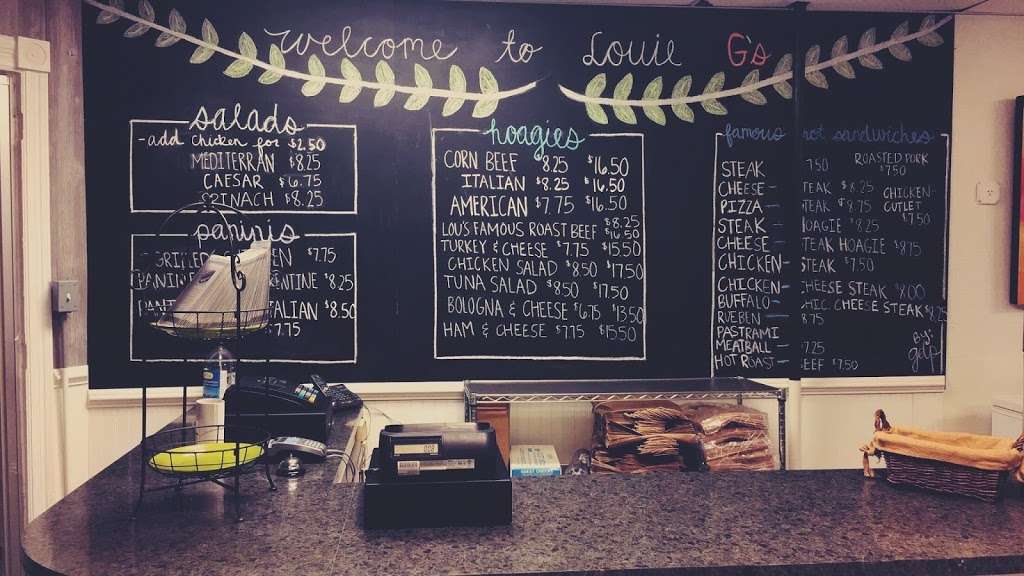 welcome to Louie G's
salads
-add chicken for $2.50
MEDITERRAN $8.25
CAESAR $6.75
SPINACH $8.25
paninis
GRILLED $7.75
PANINI $8.25
ITALIAN $8.50
$7.75
hoagies
CORN BEEF $8.25 $16.50
ITALIAN $8.25 $16.50
AMERICAN $7.75 $16.50
LOU'S FAMOUS ROAST BEEF $8.25 $16.50
TURKEY & CHEESE $7.75 $15.50
CHICKEN SALAD $8.50 $17.50
TUNA SALAD $8.50 $17.50
BOLOGNA & CHEESE $6.75 $13.50
HAM & CHEESE $7.75 $15.50
famous hot sandwiches
STEAK 7.50
CHEESE- TEAK $8.25
PIZZA- TEAK $8.75
STEAK- HOAGIE $8.25
CHEESE- TEAK HOAGIE $8.75
CHICKEN- STEAK $7.50
CHICKEN- CHEESE STEAK $8.00
BUFFALO- CHIC. CHEESE STEAK $8.25
RUEBEN- 8.75
PASTRAMI-
MEATBALL- 7.25
HOT ROAST- BEEF $7.50
ROASTED PORK
$7.50
CHICKEN
CUTLET
$7.50